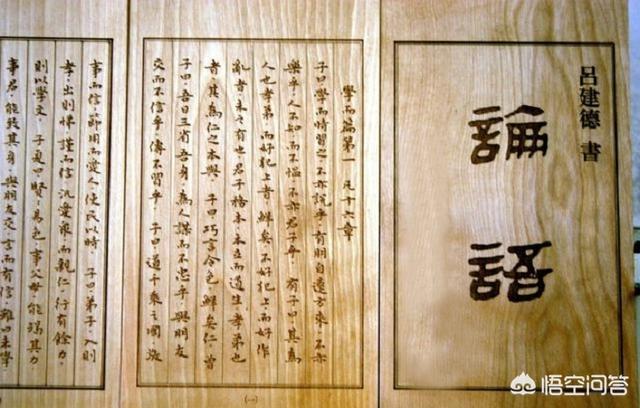 呂建德 書
論語
學而篇第一 凡十六章
子曰，學而時習之，不亦說乎，有朋自遠方來，不亦
樂乎，人不知而不慍，不亦君子乎，有子曰，其為
人也孝弟，而好犯上者，鮮矣，不好犯上，而好作
亂者，未之有也，君子務本，本立而道生，孝弟也
者，其為仁之本與，子曰，巧言令色，鮮矣仁，曾
子曰，吾日三省吾身，為人謀而不忠乎，與朋友
交而不信乎，傳不習乎，子曰，道千乘之國，敬
事而信，節用而愛人，使民以時，子曰，弟子入則
孝，出則悌，謹而信，汎愛眾，而親仁，行有餘力，
則以學文，子夏曰，賢賢易色，事父母，能竭其力
事君，能致其身，與朋友交，言而有信，雖曰未學
(一)
悟空问答